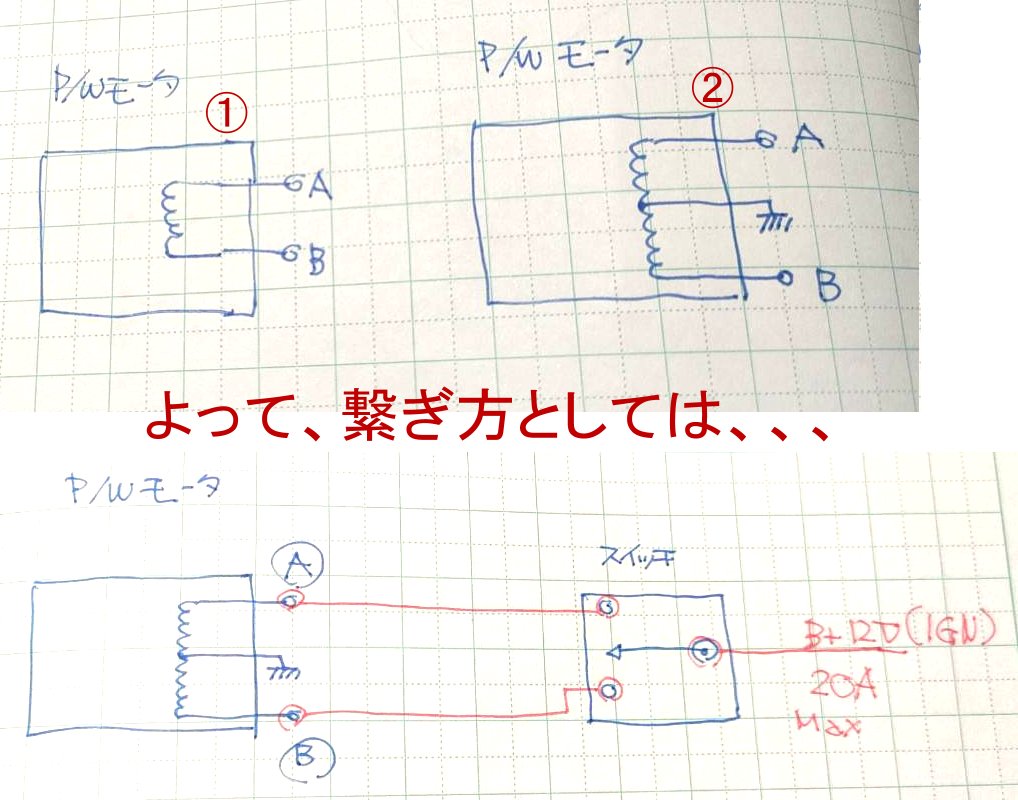 P/Wモータ
①
A
B
P/Wモータ
②
A
B
よって、繋ぎ方としては、、、
P/Wモータ
A
B
スイッチ
B+12V(IGN)
20A
Max